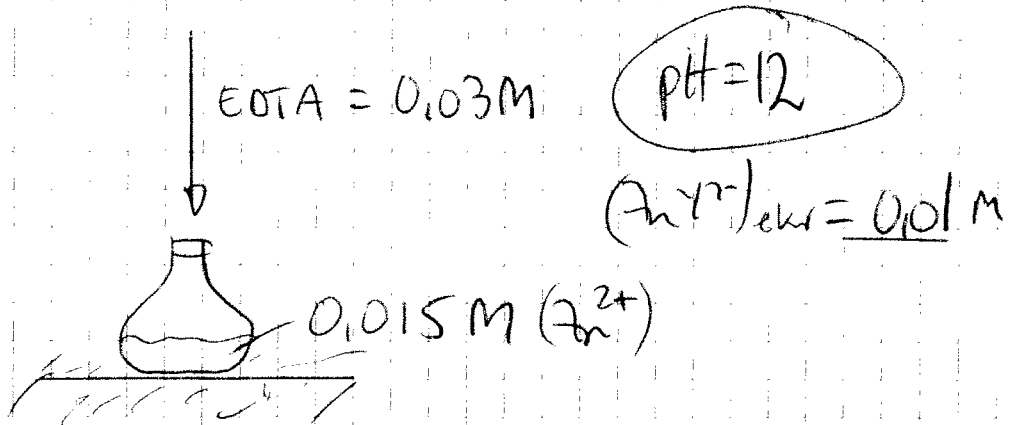 EDTA = 0,03M
pH=12
(ZnY²⁻)ekv = 0,01 M
0,015 M (Zn²⁺)